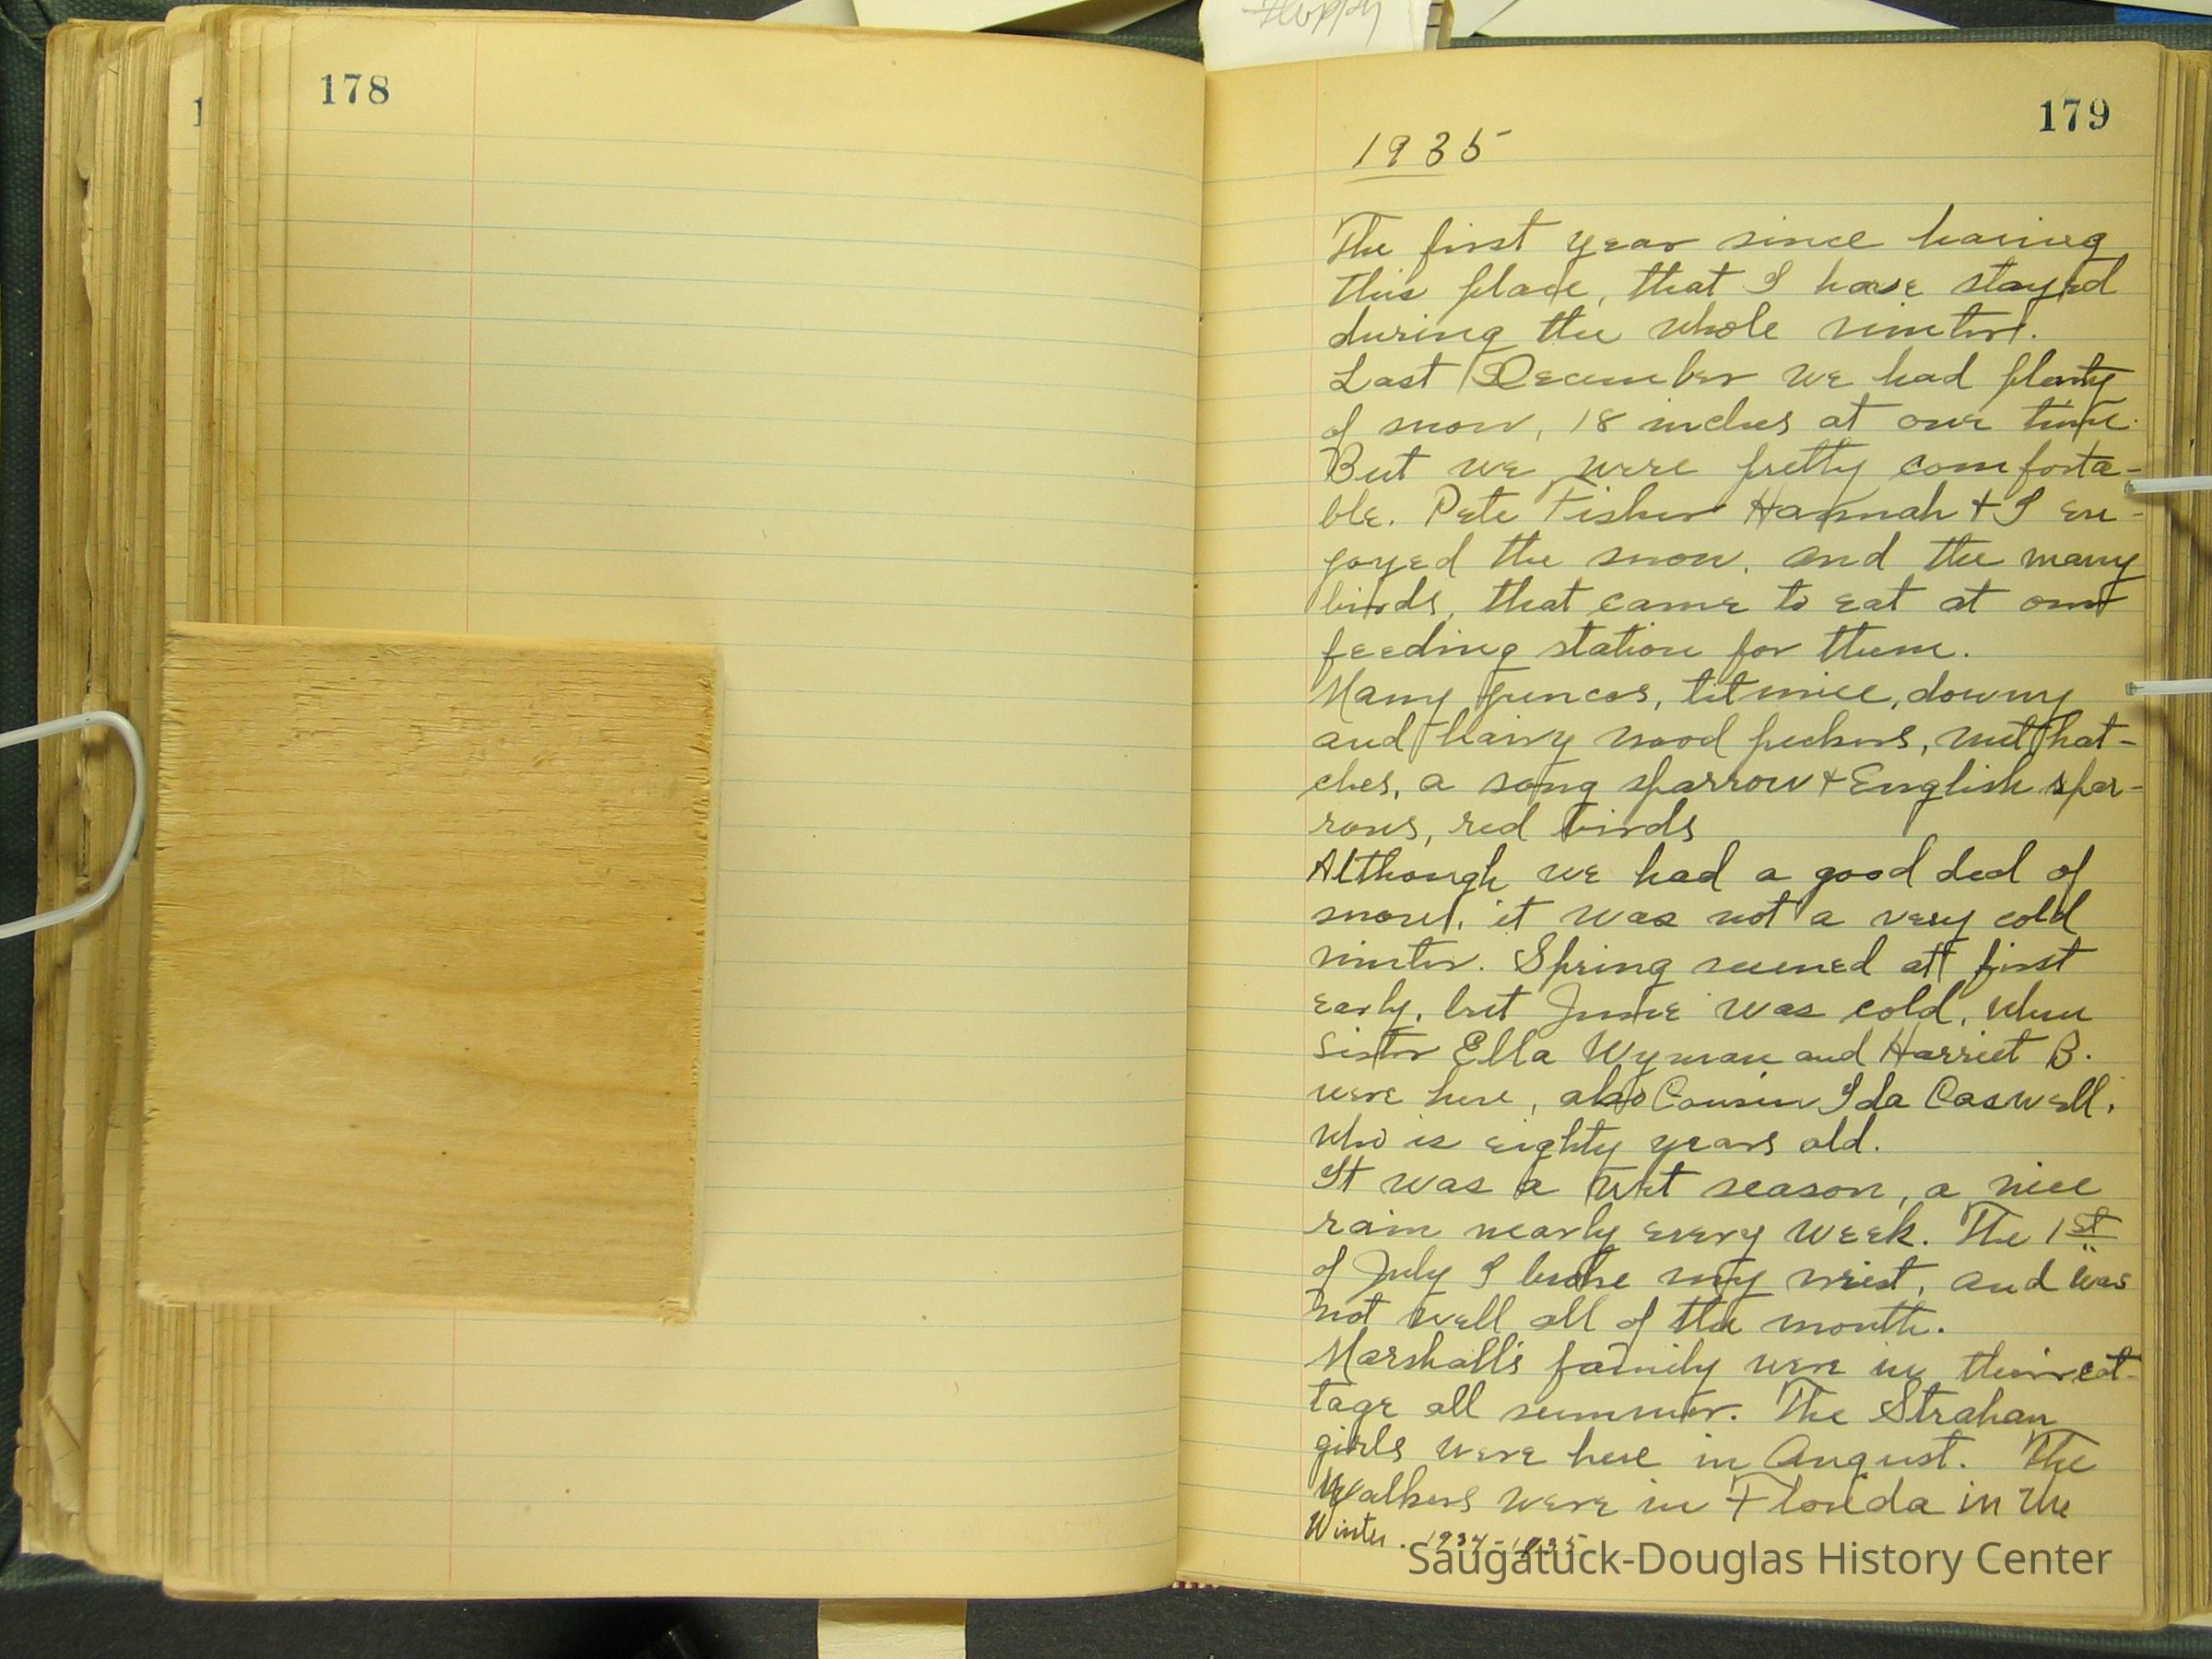 178
179
1935
The first year since having
this place, that I have stayed
during the whole winter.
Last December we had plenty
of snow, 18 inches at one time.
But we were pretty comforta-
ble. Pete Fisher Hannah + I en-
joyed the snow, and the many
birds, that came to eat at our
feeding station for them.
Many juncos, titmice, downy
and hairy wood peckers, nuthat-
ches, a song sparrow + English spar-
rows, red birds
Although we had a good deal of
snow, it was not a very cold
winter. Spring seemed at first
early, but June was cold, when
sister Ella Wyman and Harriet B.
were here, also Cousin Ida Caswell,
who is eighty years old.
It was a wet season, a nice
rain nearly every week. The 1st
of July I broke my wrist, and was
not well all of the month.
Marshall's family were in their cot-
tage all summer. The Strahan
girls were here in August. The
Walkers were in Florida in the
Winter. 1934-1935
Saugatuck-Douglas History Center